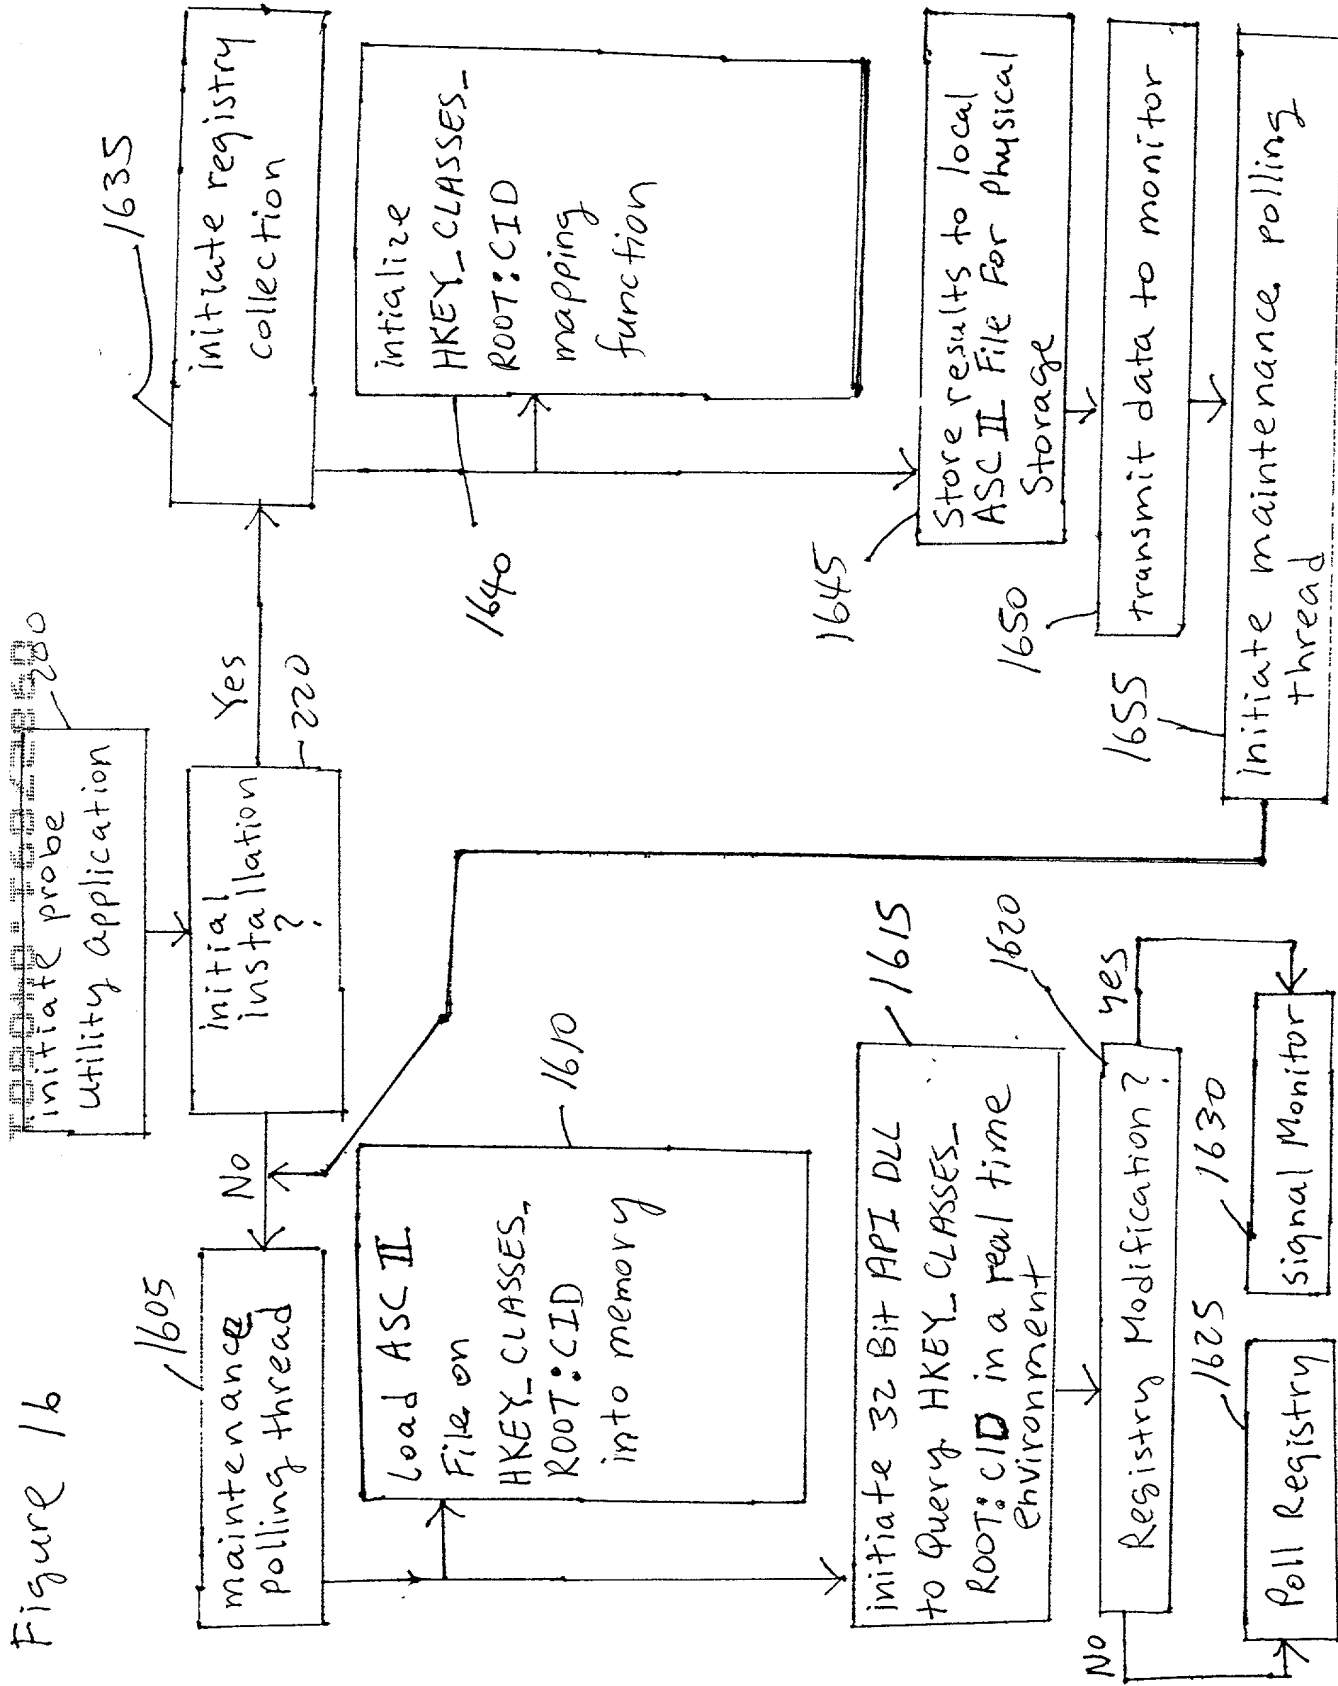 Figure 16
initiate probe
utility application
200
initial
installation
?
220
No
Yes
maintenance
polling thread
1605
Load ASC II
File on
HKEY_CLASSES_
ROOT:CID
into memory
1610
initiate 32 Bit API DLL
to Query HKEY_CLASSES_
ROOT:CID in a real time
environment
1615
Registry Modification?
1620
No
yes
Poll Registry
1625
signal Monitor
1630
initiate registry
collection
1635
intialize
HKEY_CLASSES_
ROOT:CID
mapping
function
1640
Store results to local
ASC II File For Physical
Storage
1645
transmit data to monitor
1650
initiate maintenance polling
thread
1655